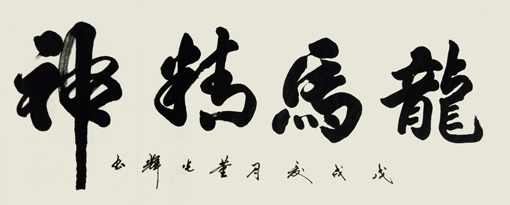 龍馬精神
戊戌夏月董光輝书